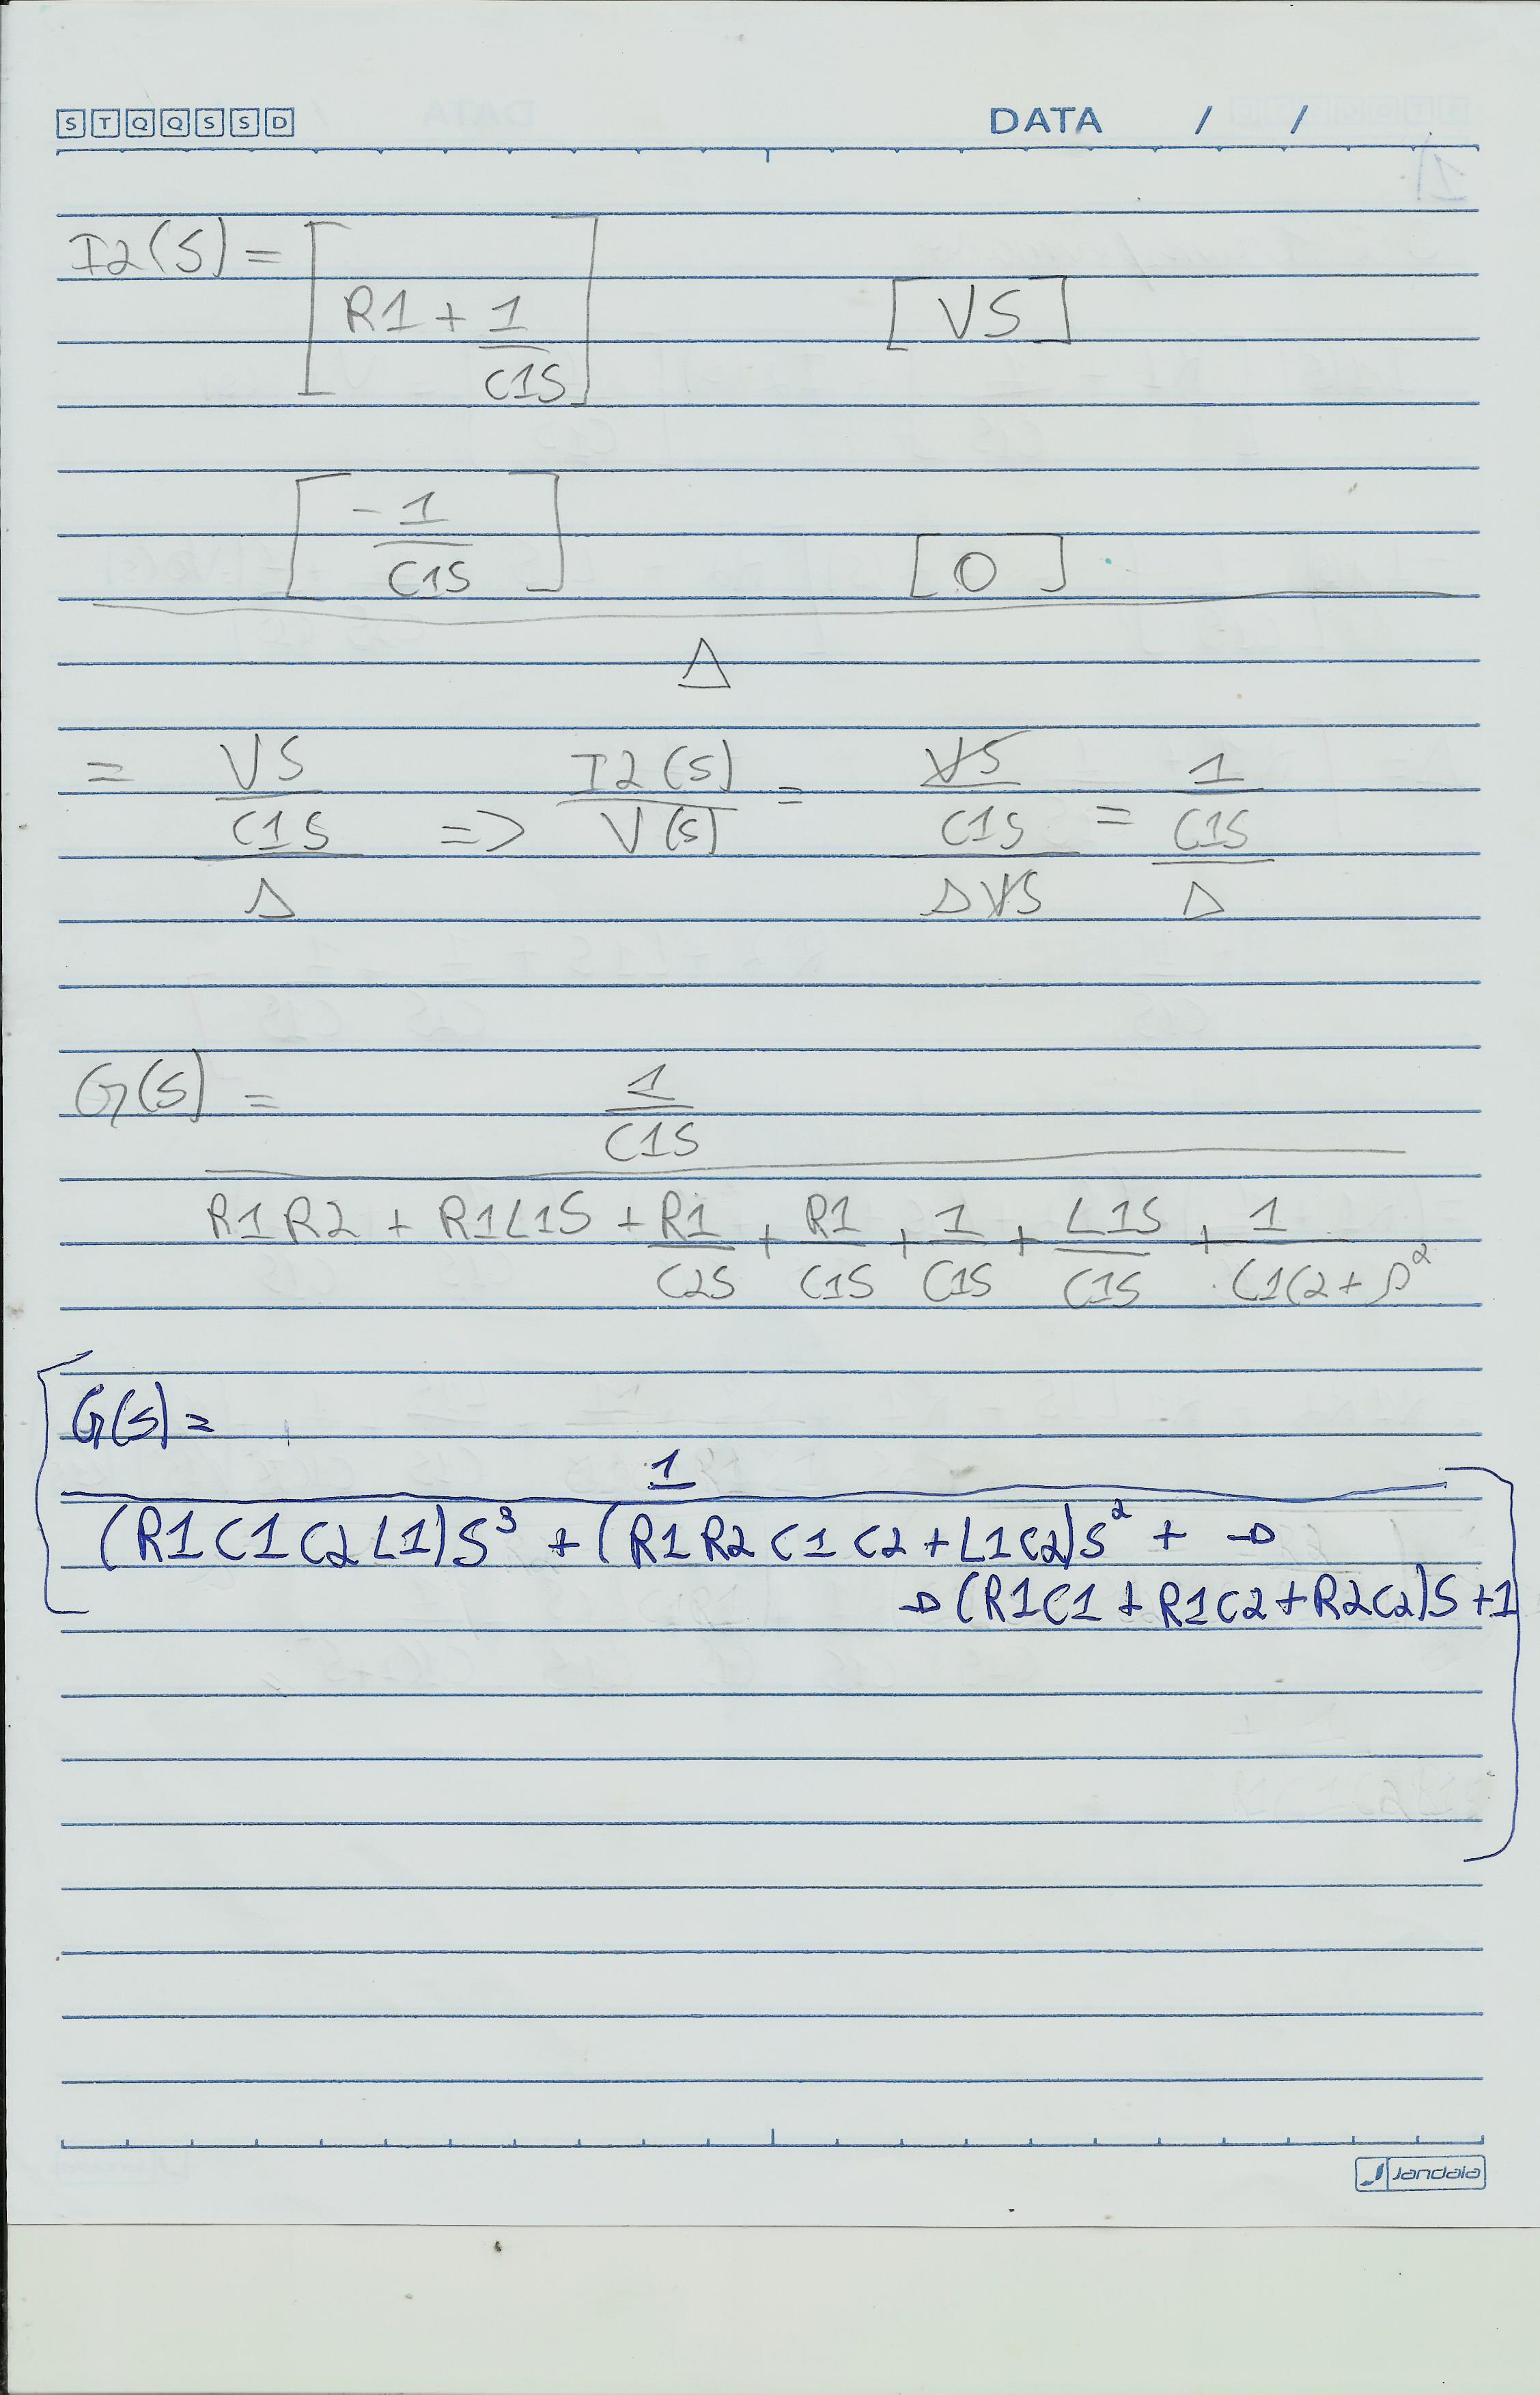 STQQSSD DATA / /
I2(S) = [R1 + 1/C1S] [VS]
[-1/C1S] [0]
Δ
= VS/C1S/Δ => I2(S)/V(S) = VS/C1S/ΔVS = 1/C1S/Δ
G(S) = 1/C1S
R1R2 + R1L1S + R1/C2S + R1/C1S + 1/C1S + L1S/C1S + 1/C1C2+s²
G(S) =
1
(R1C1C2L1)S³ + (R1R2C1C2+L1C2)S² + →
→ (R1C1 + R1C2 + R2C2)S + 1
Jandaia